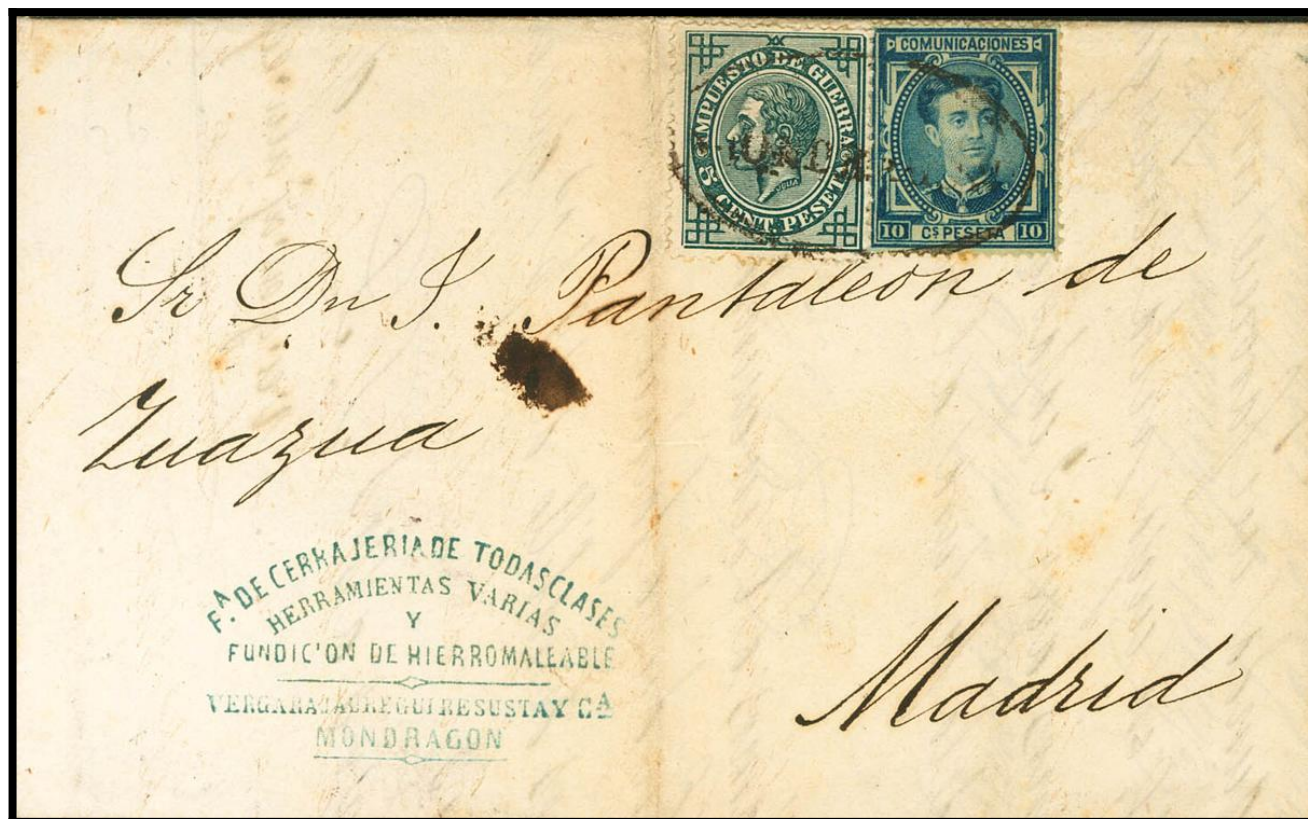 IMPUESTO DE GUERRA
5 CENT PESETA
COMUNICACIONES
10 Cs PESETA 10
Sr Dn J. Pantaleon de
Zuazua
F.A DE CERRAJERIA DE TODAS CLASES
HERRAMIENTAS VARIAS
Y
FUNDICION DE HIERRO MALEABLE
VERGARAJAUREGUI RESUSTA Y CA
MONDRAGON
Madrid